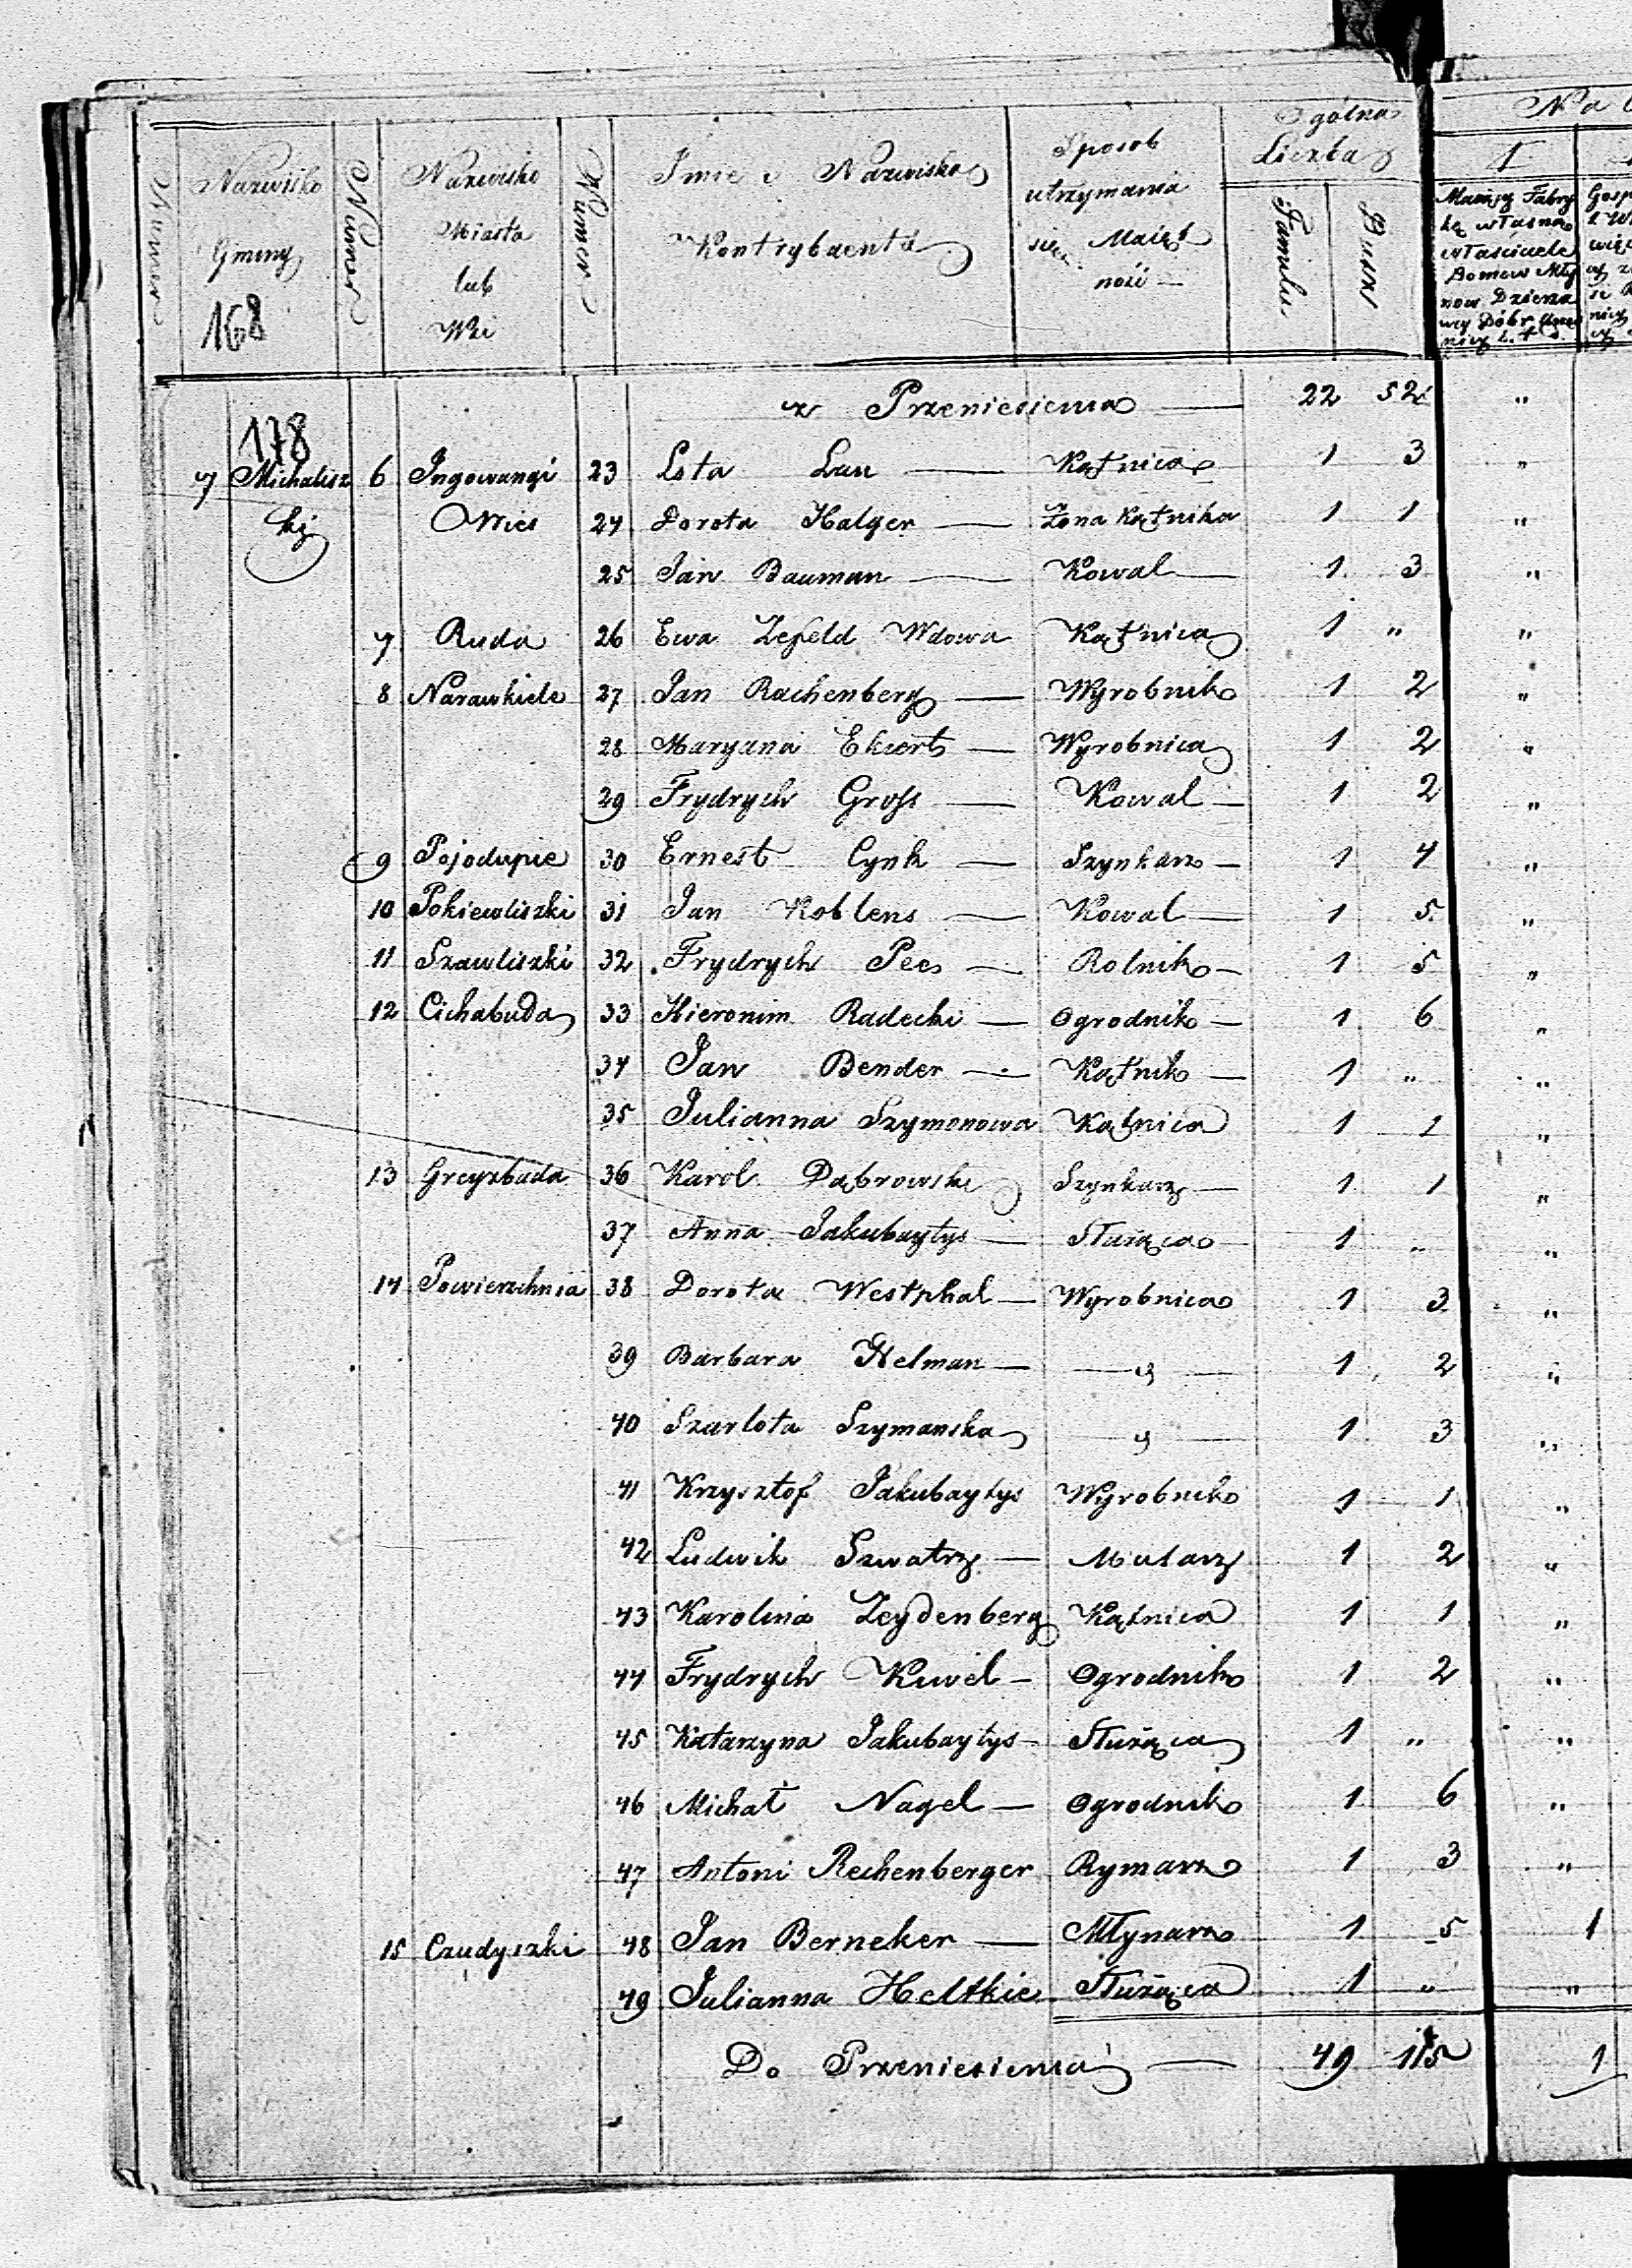 Numer
Nazwisko Gminy
168
Numer
Nazwisko Miasta lub Wsi
Numer
Imie i Nazwisko Kontrybuenta
Sposob utrzymania się Maięt ność —
Ogólna Liczba
Familii
Dusz
Na
1
z Przeniesienia — 22 52 "
178
7 Michalisz 6 Ingowangi 23 Lota Lan — Kątnica 1 3 "
ki Wies 24 Dorota Halger — Żona Kątnika 1 1 "
25 Jan Bauman — Kowal — 1 3 "
7 Ruda 26 Ewa Zefeld Wdowa Kątnica 1 " "
8 Narawkiele 27 Jan Rachenberg — Wyrobnik 1 2 "
28 Maryana Ekiert — Wyrobnica 1 2 "
29 Frydrych Gross — Kowal — 1 2 "
9 Pojodupie 30 Ernest Cynk — Szynkarz — 1 4 "
10 Pokiewliszki 31 Jan Koblens — Kowal — 1 5 "
11 Szawliszki 32 Frydrych Pees — Rolnik — 1 5 "
12 Cichabuda 33 Hieronim Radecki — Ogrodnik — 1 6 "
34 Jan Bender — Kątnik — 1 " "
35 Julianna Szymonowa Kątnica 1 1 "
13 Greyzbuda 36 Karol Dąbrowski Szynkarz — 1 1 "
37 Anna Jakubaytys — Służąca 1 " "
14 Powierzchnia 38 Dorota Westphal — Wyrobnica 1 3 "
39 Barbara Helman — — " — 1 2 "
40 Szarlota Szymanska — " — 1 3 "
41 Krzysztof Jakubaytys Wyrobnik 1 1 "
42 Ludwik Szwatrz — Mularz 1 2 "
43 Karolina Zeydenberg Kątnica 1 1 "
44 Frydrych Kuwel — Ogrodnik 1 2 "
45 Katarzyna Jakubaytys — Służąca 1 " "
46 Michał Nagel — Ogrodnik 1 6 "
47 Antoni Rechenberger Rymarz 1 3 "
15 Czudyszki 48 Jan Berneker — Młynarz 1 5 1
49 Julianna Heltkie Służąca 1 " "
Do Przeniesienia — 49 115 1